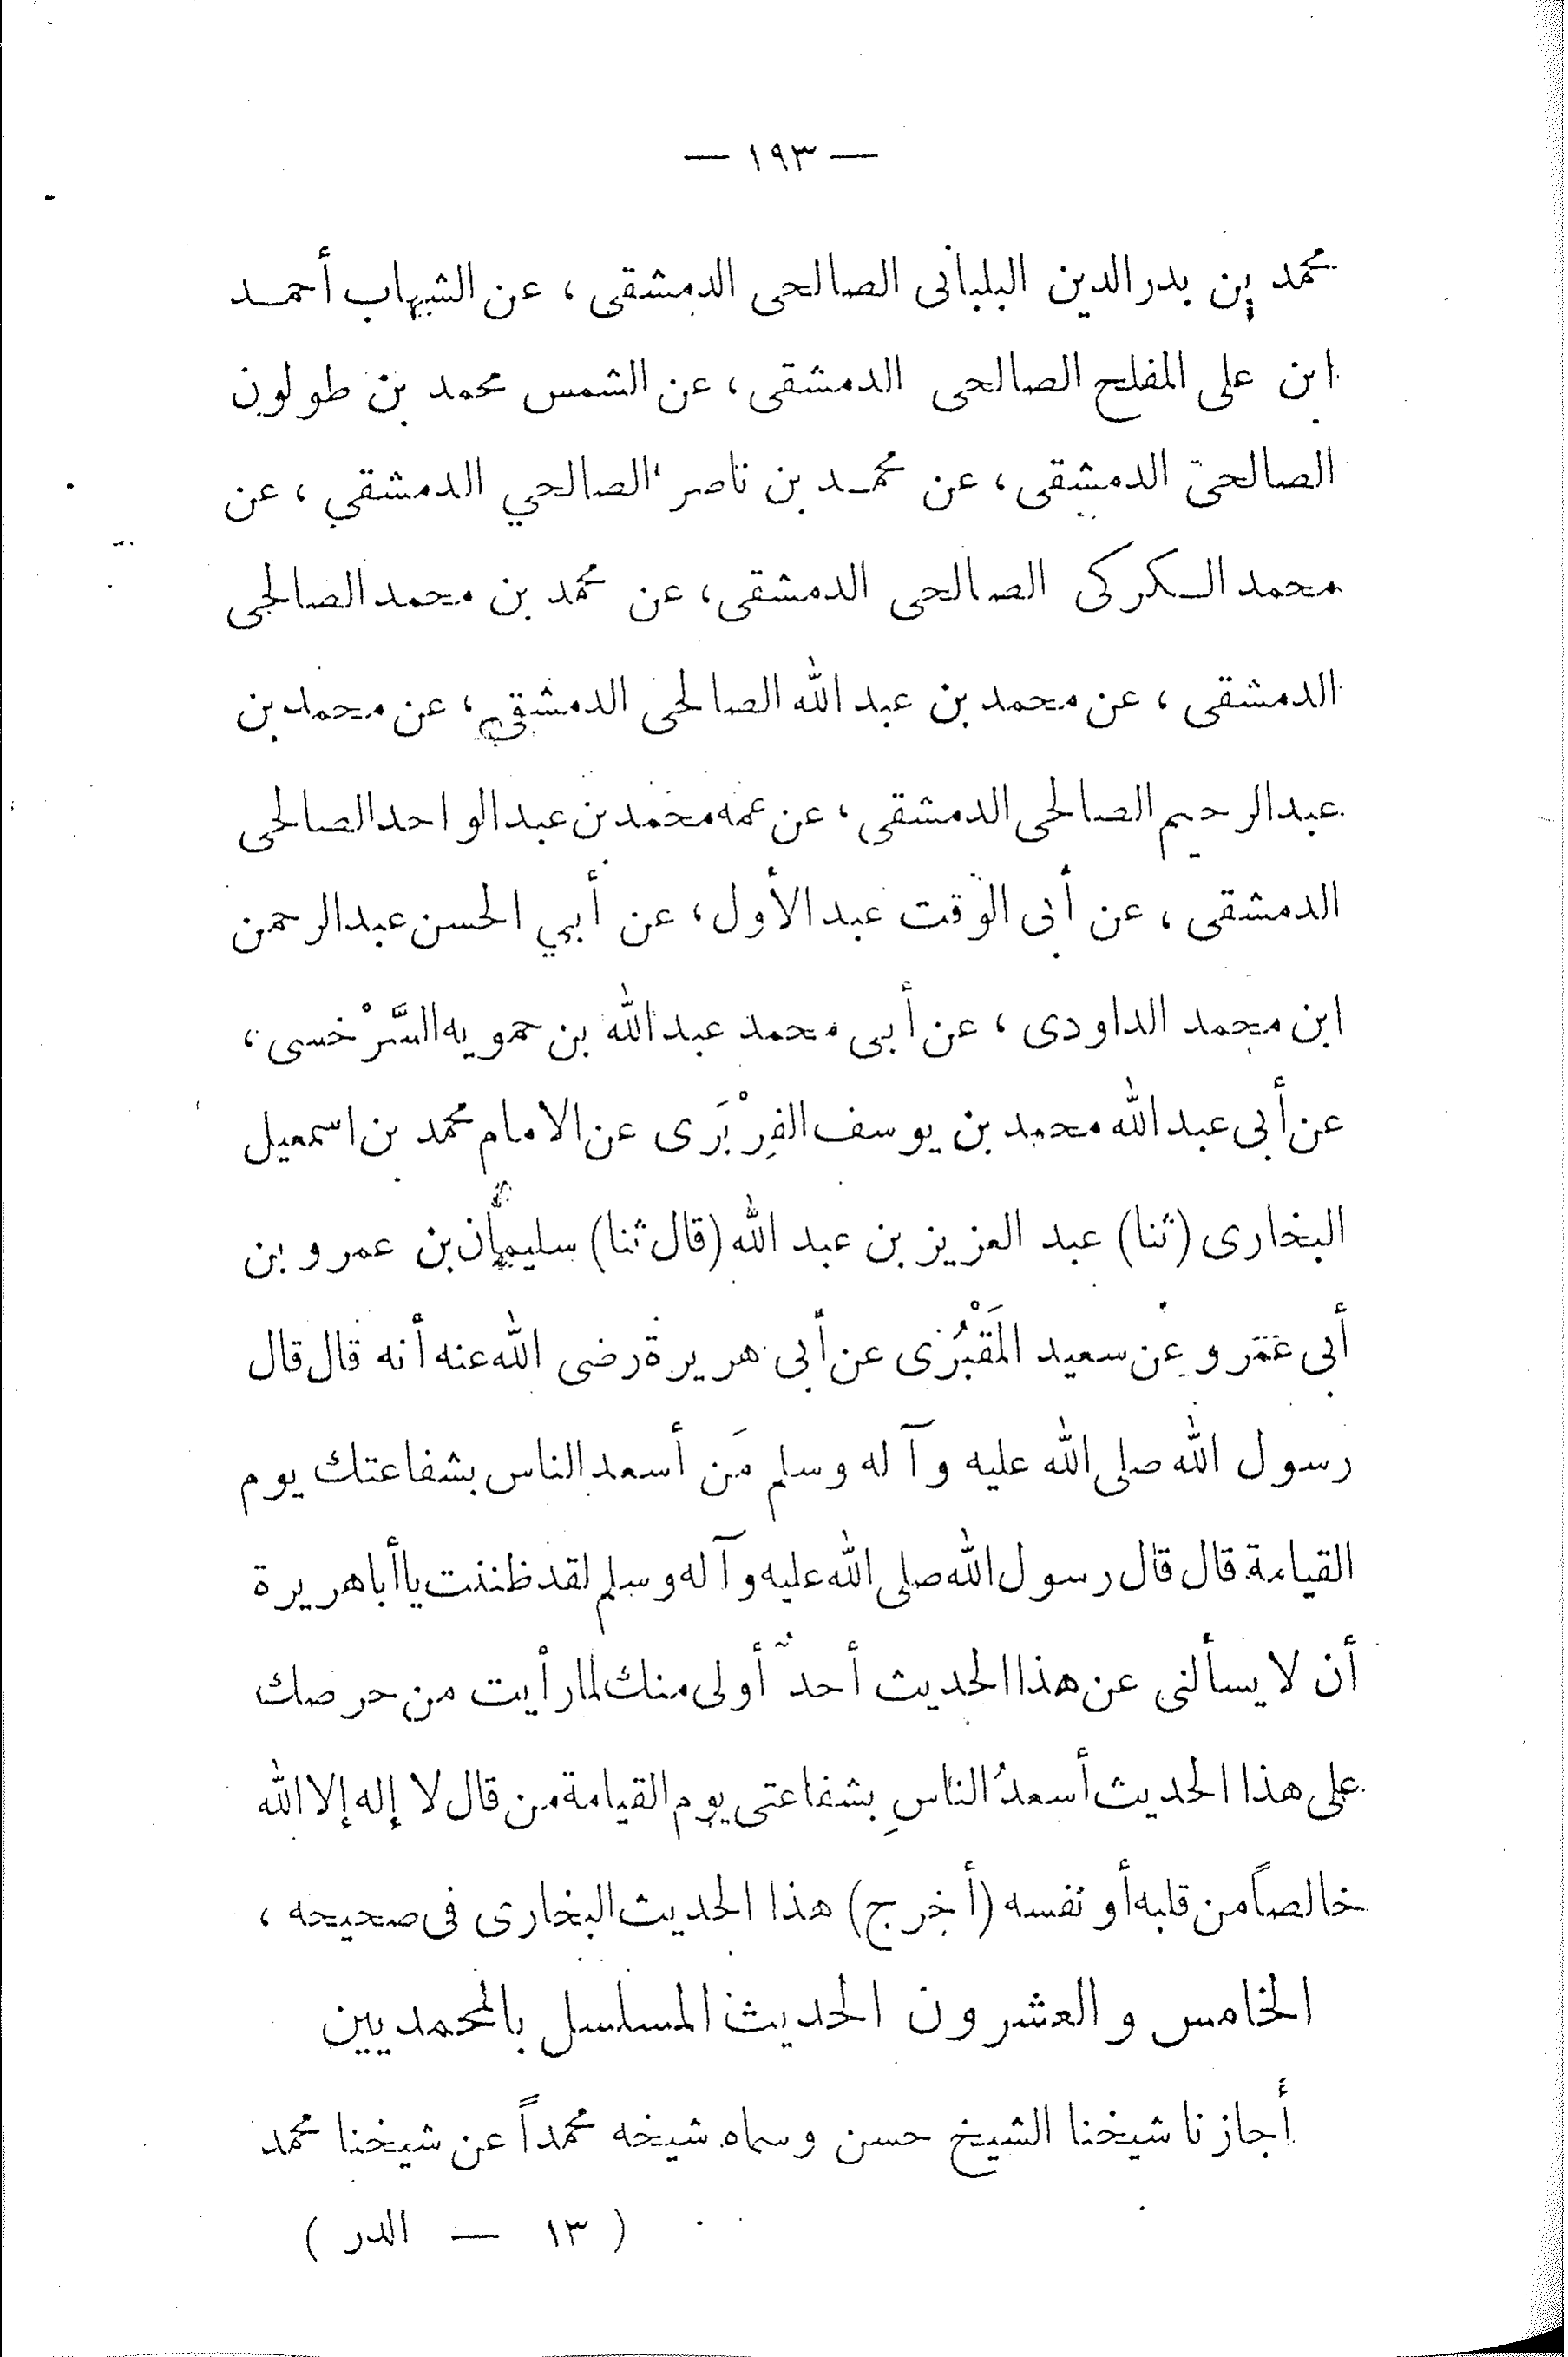 — ١٩٣ —
محمد بن بدر الدين البلبانى الصالحى الدمشقى ، عن الشهاب أحمـد
ابن على المفلح الصالحى الدمشقى ، عن الشمس محمد بن طولون
الصالحى الدمشقى ، عن محمـد بن ناصر الصالحي الدمشقي ، عن
محمد الـكركى الصالحى الدمشقى ، عن محمد بن محمد الصالحى
الدمشقى ، عن محمد بن عبد الله الصالحى الدمشقي ، عن محمد بن
عبد الرحيم الصالحى الدمشقى ، عن عمه محمد بن عبد الواحد الصالحى
الدمشقى ، عن أبى الوقت عبد الأول ، عن أبي الحسن عبد الرحمن
ابن محمد الداودى ، عن أبى محمد عبد الله بن حمويه السَّرْخسى ،
عن أبى عبد الله محمد بن يوسف الفِرْبَرى عن الامام محمد بن اسمعيل
البخارى (ثنا) عبد العزيز بن عبد الله (قال ثنا) سليمان بن عمرو بن
أبى عمرو عن سعيد المَقْبُرى عن أبى هريرة رضى الله عنه أنه قال قال
رسول الله صلى الله عليه وآله وسلم مَن أسعد الناس بشفاعتك يوم
القيامة قال قال رسول الله صلى الله عليه وآله وسلم لقد ظننت يا أبا هريرة
أن لا يسألنى عن هذا الحديث أحدٌ أولى منك لما رأيت من حرصك
على هذا الحديث أسعدُ الناسِ بشفاعتى يوم القيامة من قال لا إله إلا الله
خالصاً من قلبه أو نفسه (أخرج) هذا الحديث البخارى فى صحيحه ،
الخامس والعشرون الحديث المسلسل بالمحمديين
أجازنا شيخنا الشيخ حسن وسماه شيخه محمداً عن شيخنا محمد
( ١٣ — الدر )